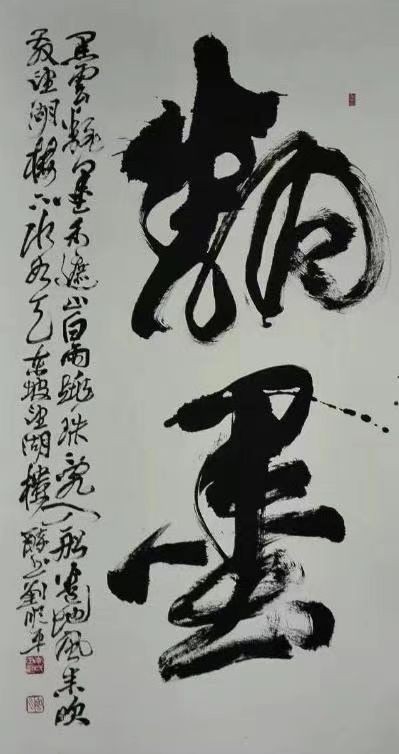 翰墨
黑雲翻墨未遮山白雨跳珠亂入船卷地風來吹
散望湖樓下水如天東坡望湖樓醉書劉平